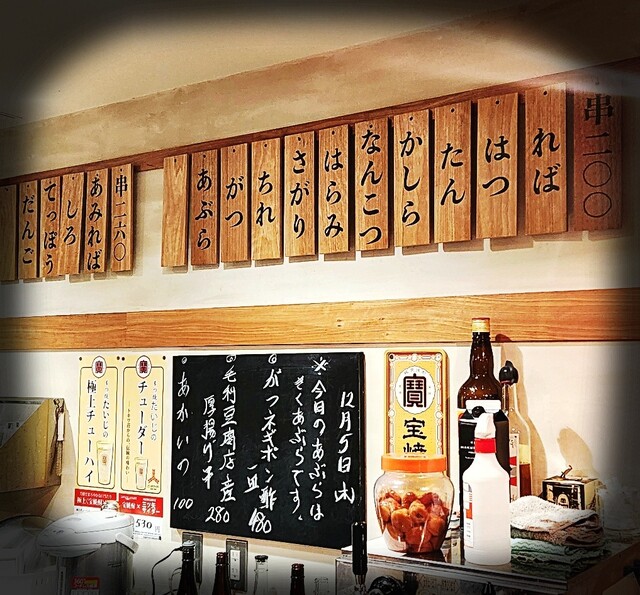 串二〇〇
れば
はつ
たん
かしら
なんこつ
はらみ
さがり
ちれ
がつ
あぶら
串一六〇
あみれば
しろ
てっぽう
だんご
12月5日
※今日のあぶらは
きくあぶらです。
◎がつネギポン酢
一皿 480
◎毛利豆腐店産
厚揚げ半 280
◎あかいの 100
寶
宝焼
寶
たいじの
チューダー
寶
たいじの
極上チューハイ
530円